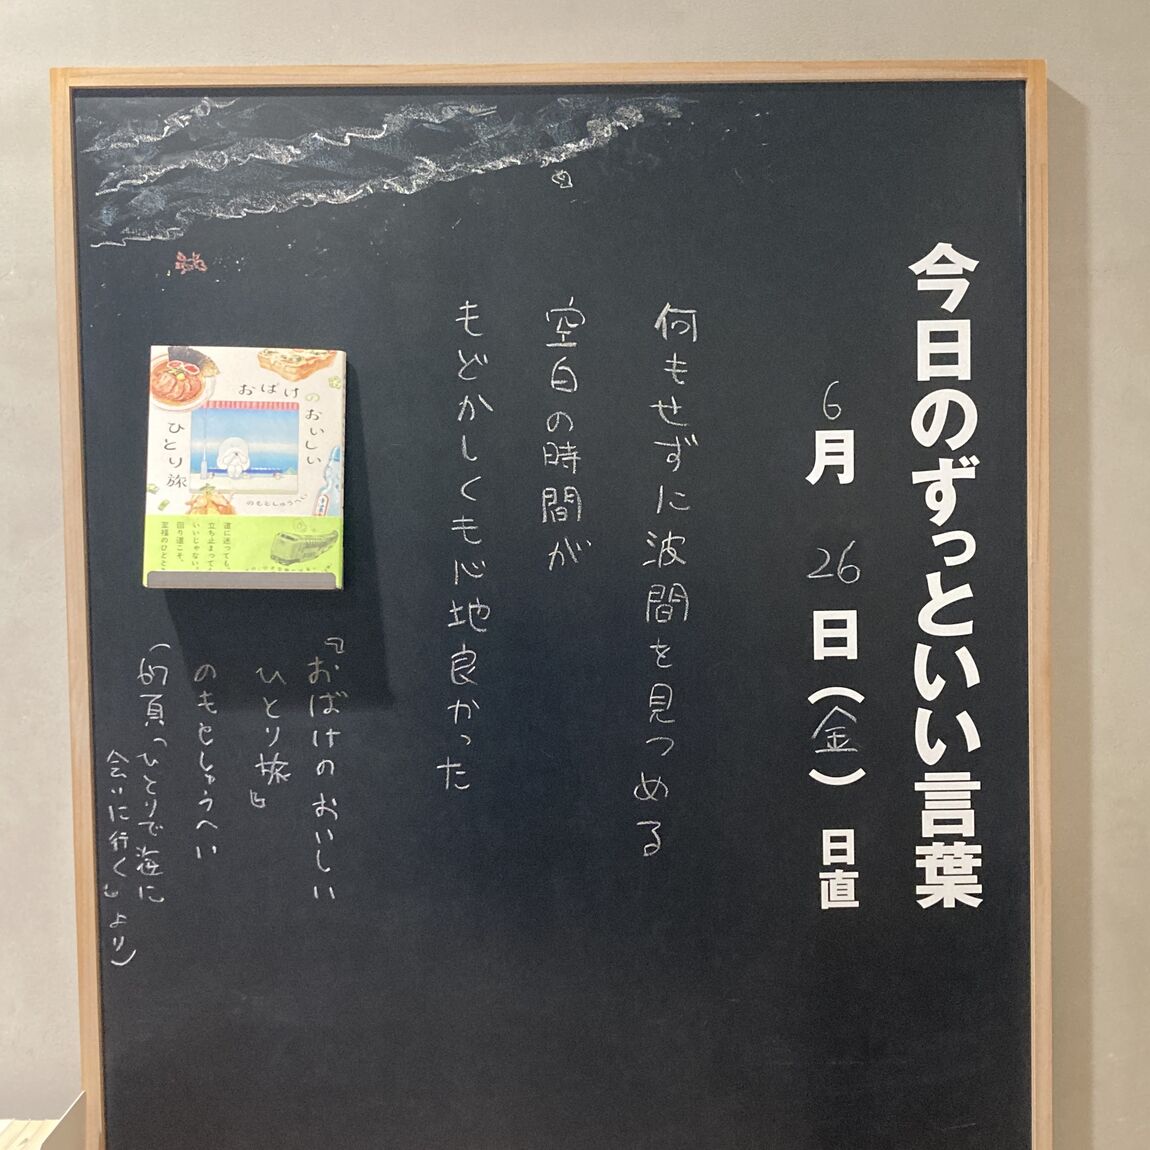 今日のずっといい言葉
6月26日(金)日直
何もせずに波間を見つめる
空白の時間が
もどかしくも心地良かった
『おばけのおいしい
ひとり旅』
のもとしゅうへい
頁「ひとりで海に
会いに行く」より)
おばけのおいしい
ひとり旅
のもとしゅうへい
道に迷っても、
立ち止まって
いいじゃない。
回り道こそ、
至福のひととき